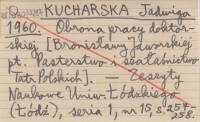 KUCHARSKA Jadwiga
1960. Obrona pracy doktor-
skiej [Bronisławy Jaworskiej
pt. Pasterstwo i szałaśnictwo
Tatr Polskich]. — Zeszyty
Naukowe Uniw. Łódzkiego
(Łódź), seria 1, nr 15, s. 257-
258.